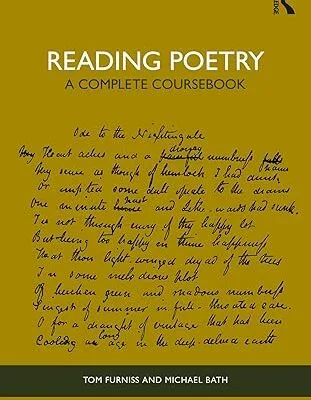 READING POETRY
A COMPLETE COURSEBOOK
Ode to the Nightingale
drowsy
My Heart aches and a painful numbness falls
pains
My sense as though of hemlock I had drunk
Or emptied some dull opiate to the drains
past
One minute hence and Lethe-wards had sunk.
Tis not through envy of thy happy lot
But being too happy in thine happiness
That thou light-winged dryad of the trees
In some melodious plot
Of beechen green and shadows numberless
Singest of summer in full-throated ease.
O for a draught of vintage that has been
long
Cooling an age in the deep-delved earth
TOM FURNISS AND MICHAEL BATH